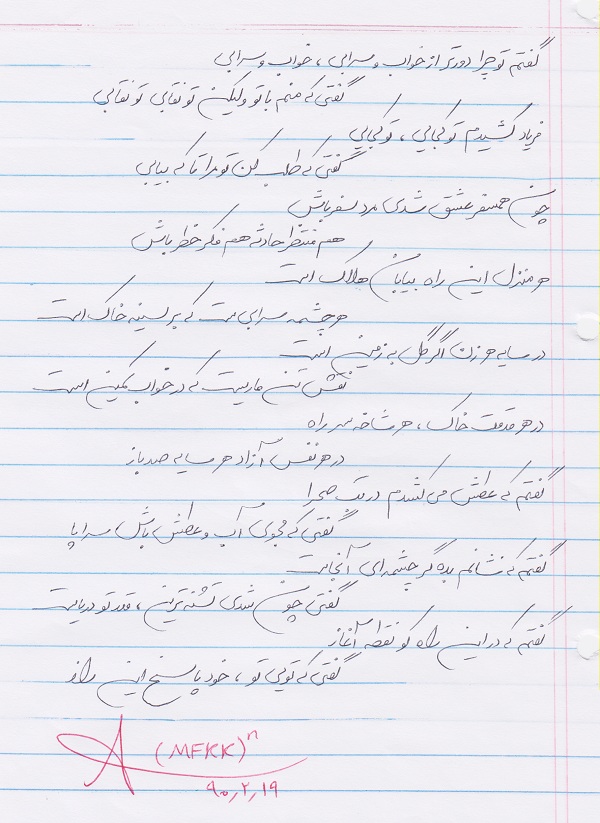 گفتم تو چرا دورتر از خواب و سرابی ، خواب و سرابی
گفتی که منم با تو ولیکن تو نقابی تو نقابی
فریاد کشیدم تو کجایی ، تو کجایی
گفتی که طلب کن تو مرا تا که بیابی
چون همسفر عشق شدی مرد سفر باش
هم منتظر حادثه هم فکر خطر باش
هر منزل این راه بیابان هلاک است
هر چشمه سرابی ست که بر سینه خاک است
در سایه هر زن اگر گل به زمین است
نقش تن ماریست که در خواب کمین است
در هر قدمت خاک ، هر شاخه سر راه
در هر نفس آزاد هر سایه صد باز
گفتم که عطش می کشدم در تب صحرا
گفتی که مجوی آب و عطش باش سراپا
گفتم که نشانم بده گر چشمه ای آنجاست
گفتی چون شدی تشنه ترین ، قلب تو دریاست
گفتم که در این راه کو نقطه آغاز
گفتی که تویی تو ، خود پاسخ این راز
(MFKK)ⁿ
۹۰٫۲٫۱۹